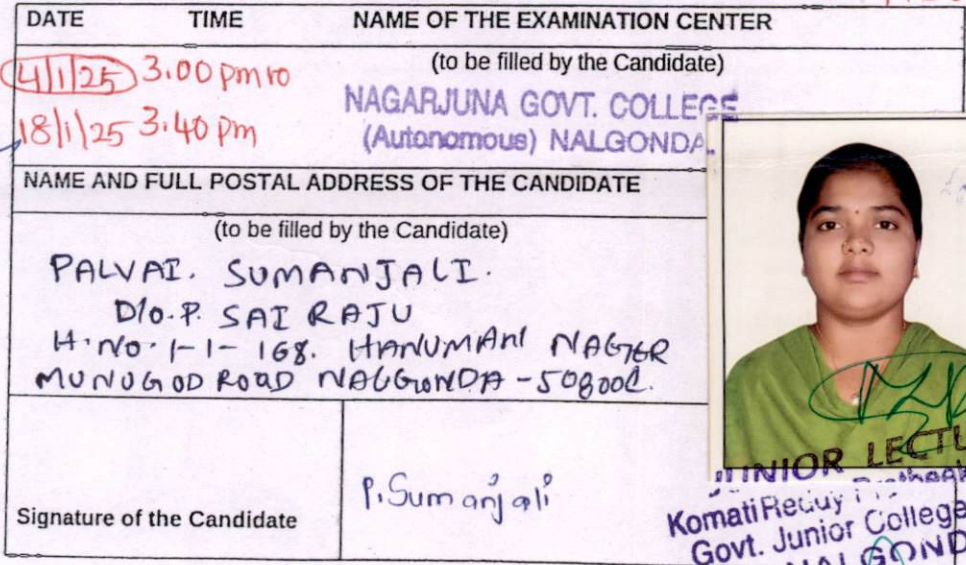 DATE TIME NAME OF THE EXAMINATION CENTER
(to be filled by the Candidate)
4/1/25 3.00 pm to
18/1/25 3.40 pm
NAGARJUNA GOVT. COLLEGE
(Autonomous) NALGONDA.
NAME AND FULL POSTAL ADDRESS OF THE CANDIDATE
(to be filled by the Candidate)
PALVAI. SUMANJALI.
D/o. P. SAI RAJU
H. No. 1-1-168. HANUMAN NAGER
MUNUGOD ROAD NALGONDA - 508001.
Signature of the Candidate
P. Sumanjali
JUNIOR LECTU
Komati Reddy
Govt. Junior College
NALGOND